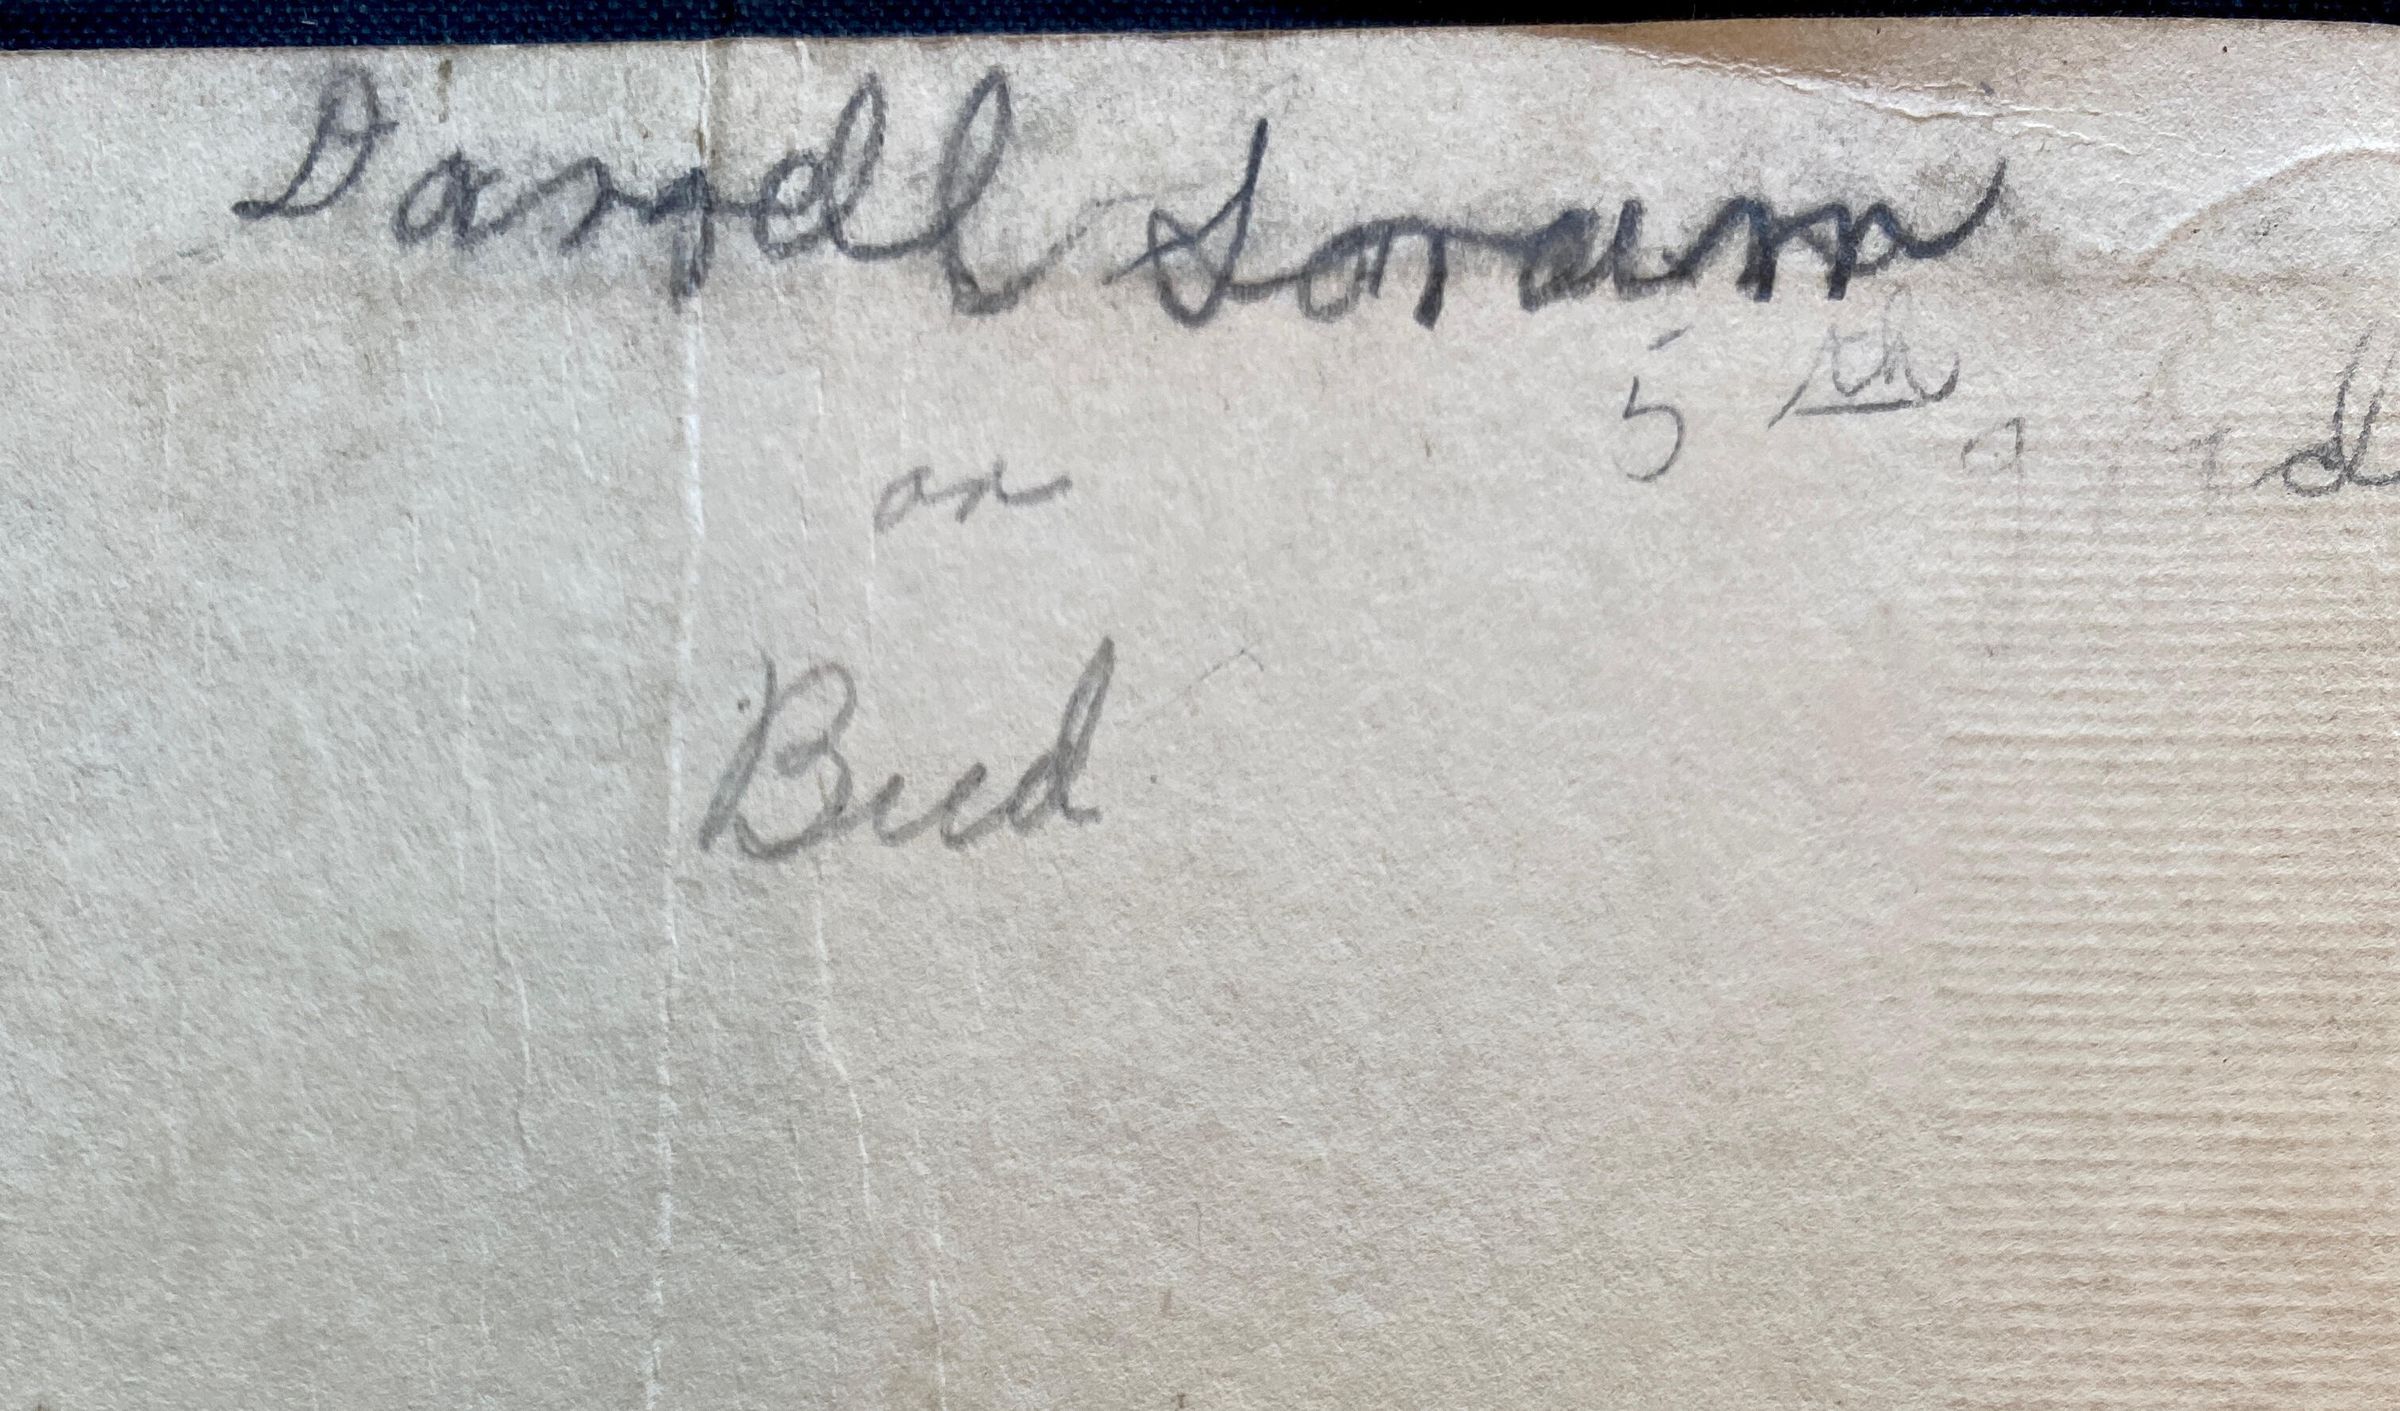 Darrell Soram
5th
or
Bud